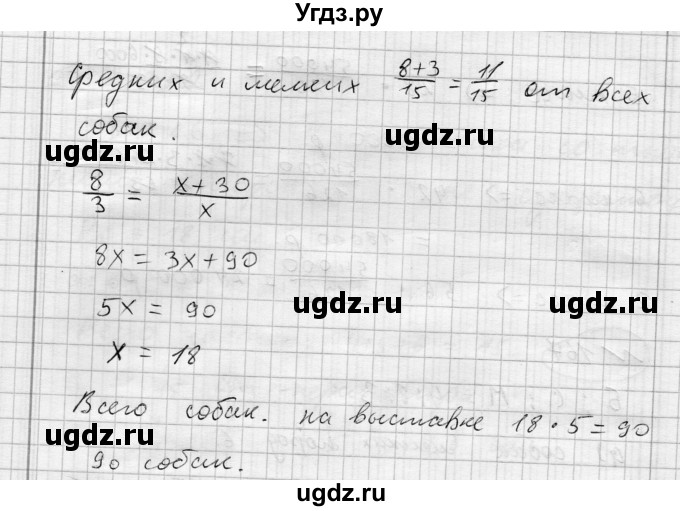 Угдз.ру
Средних и мелких 8+3/15 = 11/15 от всех
собак.
ugdz.ru ugdz.ru
8/3 = x + 30/x
8x = 3x + 90
ugdz.ru ugdz.ru
5x = 90
x = 18
Всего собак. на выставке 18 · 5 = 90
ugdz.ru ugdz.ru
90 собак.
ugdz.ru